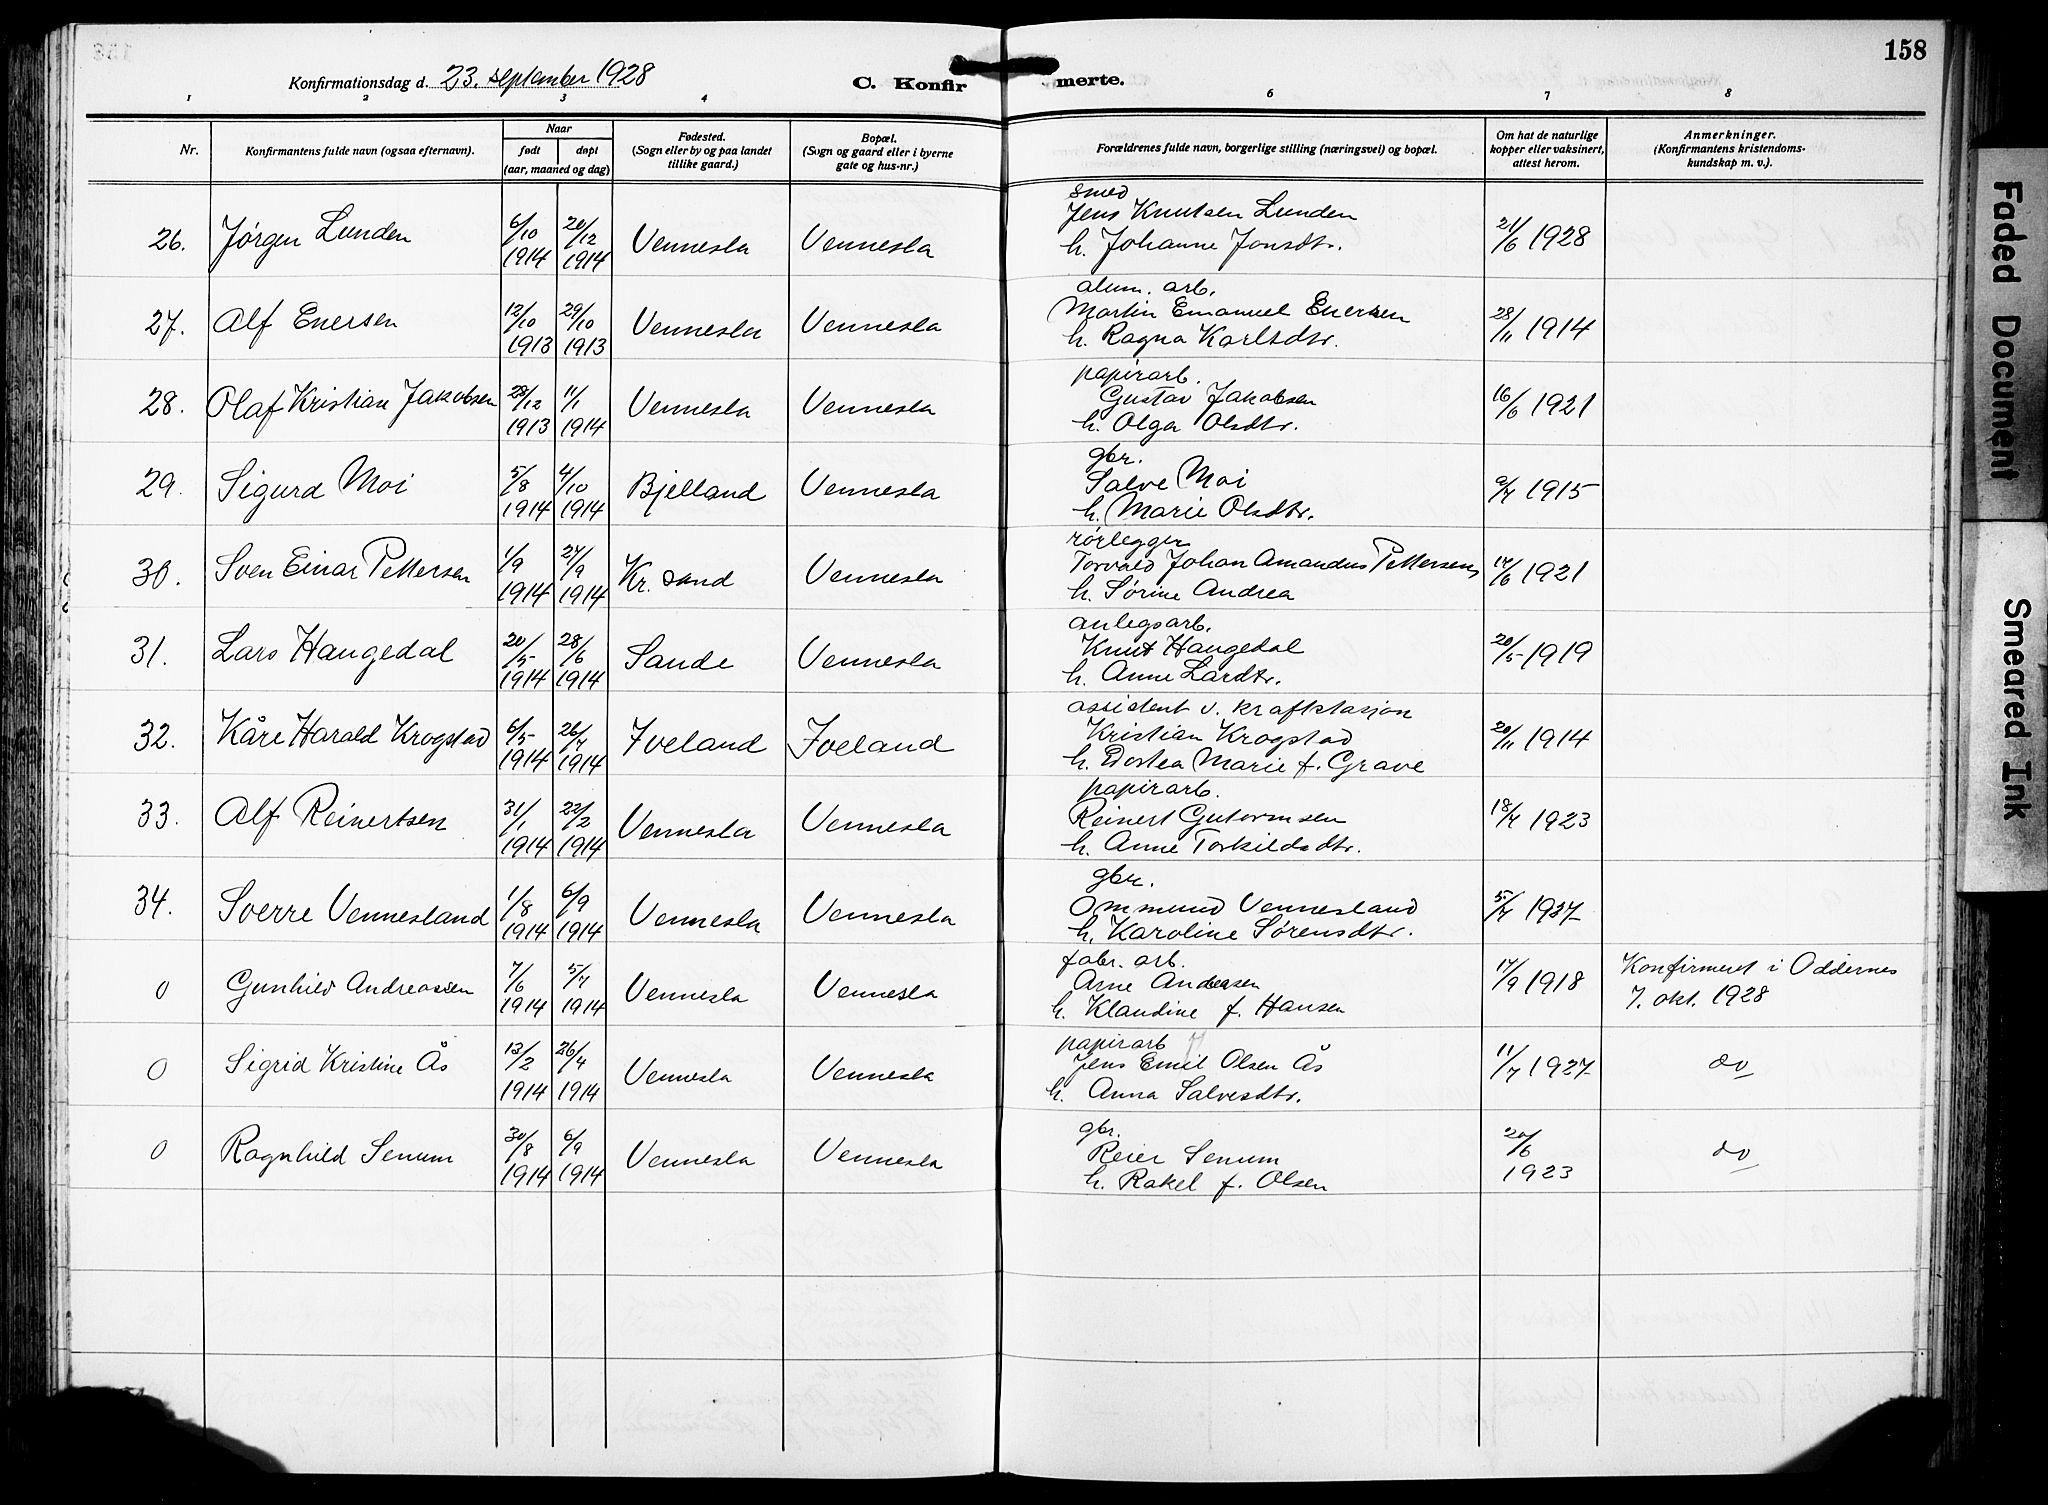 158
Konfirmationsdag d. 23. september 1928
C. Konfir merte.
1 2 3 4 5 6 7 8
Nr.
Konfirmantens fulde navn (ogsaa efternavn).
Naar
født døpt
(aar, maaned og dag)
Fødested.
(Sogn eller by og paa landet
tillike gaard.)
Bopæl.
(Sogn og gaard eller i byerne
gate og hus-nr.)
Forældrenes fulde navn, borgerlige stilling (næringsvei) og bopæl.
Om hat de naturlige
kopper eller vaksinert,
attest herom.
Anmerkninger.
(Konfirmantens kristendoms-
kundskap m. v.).
smed
26. Jørgen Lunden 6/10 1914 20/12 1914 Vennesla Vennesla Jens Knutsen Lunden
h. Johanne Jonsdtr. 21/6 1928
alum. arb.
27. Alf Enersen 12/10 1913 29/10 1913 Vennesla Vennesla Martin Emanuel Enersen
h. Ragna Karlsdtr. 28/11 1914
papirarb.
28. Olaf Kristian Jakobsen 28/12 1913 11/1 1914 Vennesla Vennesla Gustav Jakobsen
h. Olga Olsdtr. 16/6 1921
gbr.
29. Sigurd Moi 5/8 1914 4/10 1914 Bjelland Vennesla Salve Moi
h. Marie Olsdtr. 9/7 1915
rørlegger
30. Sven Einar Pettersen 1/9 1914 27/9 1914 Kr. sand Vennesla Torvald Johan Amandus Pettersen
h. Sørine Andrea 14/6 1921
anlegsarb.
31. Lars Haugedal 20/5 1914 28/6 1914 Sande Vennesla Knut Haugedal
h. Anne Larsdtr. 20/5 1919
assistent v. kraftstasjon
32. Kåre Harald Krogstad 6/5 1914 26/7 1914 Iveland Iveland Kristian Krogstad
h. Dortea Marie f. Grave 20/11 1914
papirarb.
33. Alf Reinertsen 31/1 1914 22/2 1914 Vennesla Vennesla Reinert Gutormsen
h. Anne Torkildsdtr. 18/7 1923
gbr.
34. Sverre Vennesland 1/8 1914 6/9 1914 Vennesla Vennesla Ommund Vennesland
h. Karoline Sørensdtr. 5/7 1927
fabr. arb.
0 Gunhild Andreassen 7/6 1914 5/7 1914 Vennesla Vennesla Arne Andreasen
h. Klaudine f. Hansen 17/9 1918 Konfirmeret i Oddernes
7. okt. 1928
papirarb
0 Sigrid Kristine Ås 13/2 1914 26/4 1914 Vennesla Vennesla Jens Emil Olsen Ås
h. Anna Salvesdtr. 11/7 1927 do
gbr.
0 Ragnhild Senum 30/8 1914 6/9 1914 Vennesla Vennesla Reier Senum
h. Rakel f. Olsen 20/6 1923 do
Faded Document
Smeared Ink